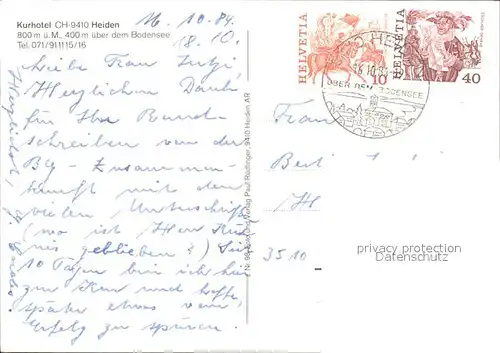 Kurhotel CH-9410 Heiden
800 m ü.M., 400 m über dem Bodensee
Tel. 071/911115/16
16.10.84
18.10.
Liebe Frau
Herzlichen Dank
für Ihr Rund-
schreiben von der
Bg-Zusammen-
kunft mit den
vielen Unterschriften
(wo ist Herr
geblieben?) Seit
10 Tagen bin ich hier
zur Kur und hoffe,
später etwas vom
Erfolg zu spüren.
Herzlichst,
Verlag Paul Rüdlinger, 9410 Heiden AR
HELVETIA
10
HELVETIA
40
ÜBER DEM BODENSEE
Frau
3510
privacy protection
DGMK